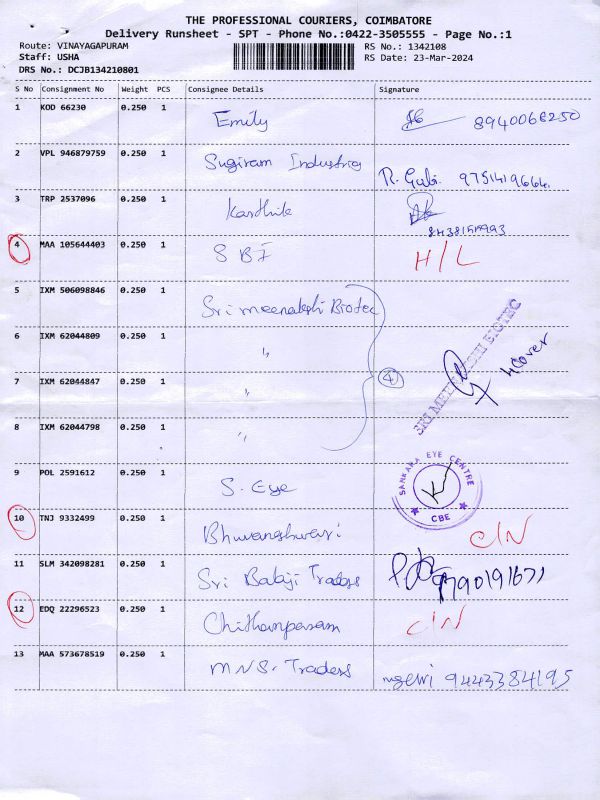 THE PROFESSIONAL COURIERS, COIMBATORE
Delivery Runsheet - SPT - Phone No.:0422-3505555 - Page No.:1
Route: VINAYAGAPURAM RS No.: 1342108
Staff: USHA RS Date: 23-Mar-2024
DRS No.: DCJB134210801
S No Consignment No Weight PCS Consignee Details Signature
1 KOD 66230 0.250 1 Emily
2 VPL 946879759 0.250 1 Sugiram R. Gubi. 9751419664.
3 TRP 2537096 0.250 1 Karthik
4 MAA 105644403 0.250 1 H/L
5 IXM 506098846 0.250 1 Sri meenakshi Biotec
6 IXM 62044809 0.250 1 "
7 IXM 62044847 0.250 1 "
4
4cover
SRI MEENAKSHI BIOTEC
8 IXM 62044798 0.250 1 "
9 POL 2591612 0.250 1 S. Eye
SANKARA EYE CENTRE
CBE
10 TNJ 9332499 0.250 1 Bhuvaneshwari C/N
11 SLM 342098281 0.250 1 Sri Balaji Traders
12 EDQ 22296523 0.250 1 Chithamparam C/N
13 MAA 573678519 0.250 1 M N S. Traders 9443384195